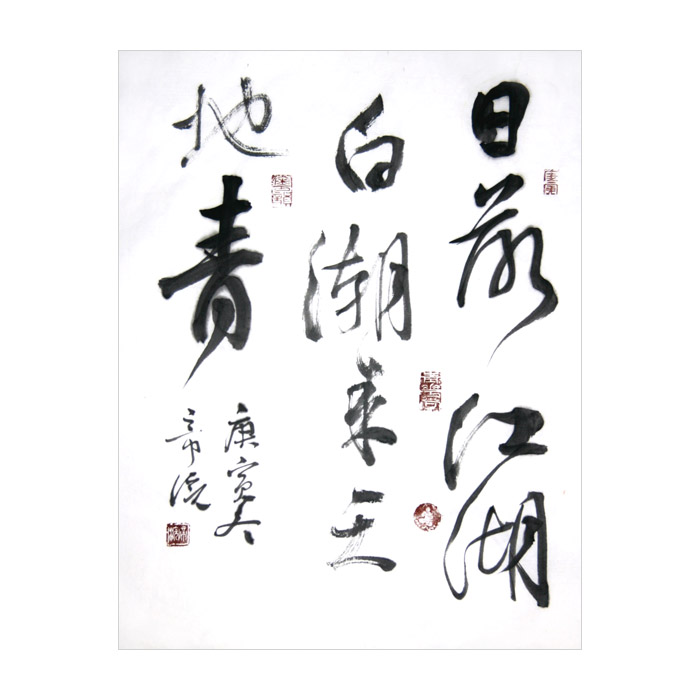 日落江湖
白潮来天
地青
庚寅冬